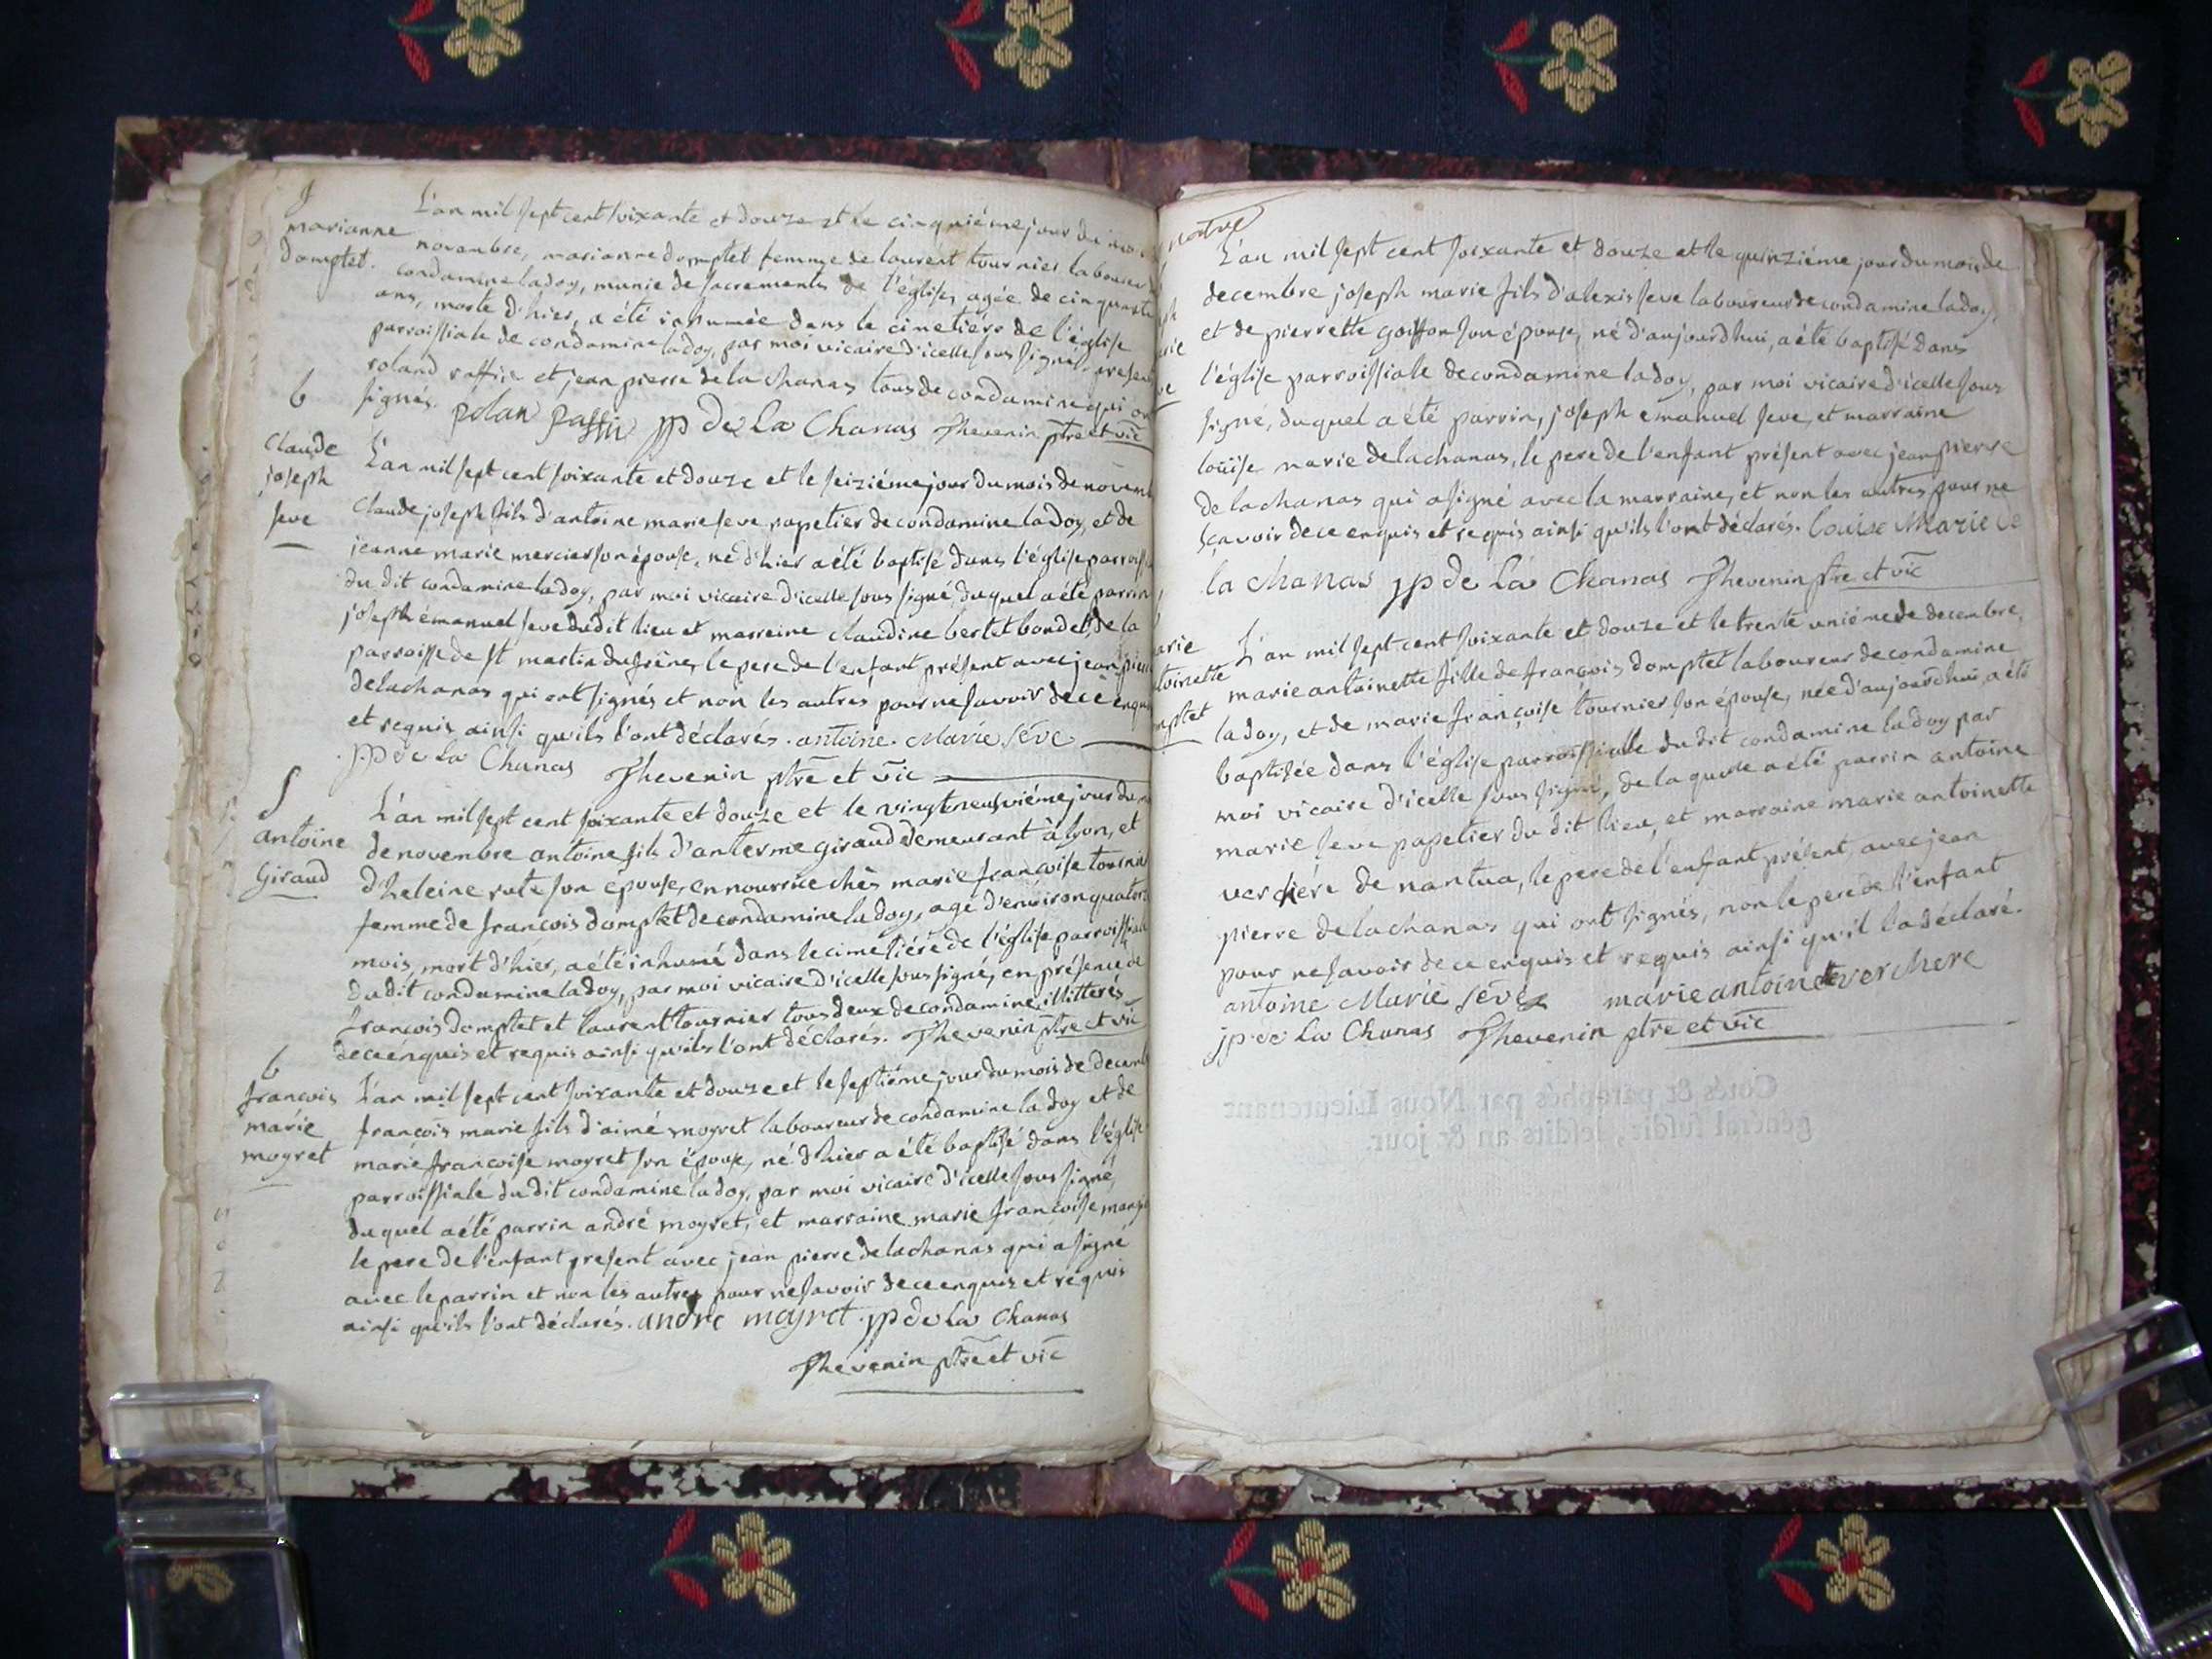 S
marianne
domptet.
L'an mil sept cent soixante et douze et le cinquiéme jour du
novembre, marianne domptet femme de laurent tournier laboureur
condamine ladoy, munie de sacrements de l'église, agée de cinquante
ans, morte d'hier, a été inhumée dans le cimetiére de l'église
parroissiale de condamine ladoy, par moi vicaire d'icelle sous signé, presen
roland raffin et jean pierre de la chanas tous de condamine qui on
signés. rolan raffin jp de La Chanas Thevenin ptre et vic
b
Claude
joseph
seve
L'an mil sept cent soixante et douze et le seiziéme jour du mois de novem
Claude joseph fils d'antoine marie seve papetier de condamine ladoy, et de
jeanne marie mercier son épouse, né d'hier a été baptisé dans l'église parroiss
du dit condamine ladoy, par moi vicaire d'icelle sous signé, du quel a été parrin
joseph émanuel seve du dit lieu et marreine claudine bertet bondet, de la
parroisse de st martin du frêne, le pere de l'enfant présent avec jean pierre
de lachanas qui ont signés et non les autres pour ne savoir de ce enqui
et requis ainsi qu'ils l'ont déclarés. antoine. Marie Seve
jp de La Chanas Thevenin ptre et vic
S
antoine
Giraud
L'an mil sept cent soixante et douze et le vingt neuviéme jour du
de novembre antoine fils d'anterme giraud demeurant à lyon, et
d'heleine rute son épouse, en nourrice chès marie françoise tournier
femme de françois domptet de condamine ladoy, agé d'environ quator
mois, mort d'hier, a été inhumé dans le cimetiére de l'église parroissiale
du dit condamine ladoy, par moi vicaire d'icelle sous signé, en présence de
françois domptet et laurent tournier tous deux de condamine, illitterés
de ce enquis et requis ainsi qu'ils l'ont déclarés. Thevenin ptre et vic
b
françois
marie
moyret
L'an mil sept cent soixante et douze et le septiéme jour du mois de decemb
françois marie fils d'aimé moyret laboureur de condamine la doy et de
marie françoise moyret son épouse, né d'hier a été baptisé dans l'église
parroissiale du dit condamine la doy, par moi vicaire d'icelle sous signé,
du quel a été parrin andré moyret, et marraine marie françoise
le pere de l'enfant present avec jean pierre de lachanas qui a signé
avec le parrin et non les autres pour ne savoir de ce enquis et réquis
ainsi qu'ils l'ont déclarés. andre moyret. jp de La Chanas
Thevenin ptre et vic
L'an mil sept cent soixante et douze et le quinziéme jour du mois de
decembre joseph marie fils d'alexis seve laboureur de condamine ladoy,
et de pierrette goiffon son épouse, né d'aujourd'hui, a été baptisé dans
l'église parroissiale de condamine la doy, par moi vicaire d'icelle sous
signé, du quel a été parrin, joseph emanuel seve, et marraine
loüise marie de lachanas, le pere de l'enfant présent avec jean pierre
de lachanas qui a signé avec la marraine, et non les autres pour ne
sçavoir de ce enquis et requis ainsi qu'ils l'ont déclarés. Louise Marie De
la chanas jp de La Chanas Thevenin ptre et vic
arie
toinette
mptet
L'an mil sept cent soixante et douze et le trente uniéme de decembre,
marie antoinette fille de françois domptet laboureur de condamine
la doy, et de marie françoise tournier son épouse, née d'aujourdhui, a été
baptisée dans l'église parroissialle du dit condamine la doy par
moi vicaire d'icelle sous signé, de la quelle a été parrin antoine
marie seve papetier du dit lieu, et marraine marie antoinette
verchére de nantua, le pere de l'enfant présent, avec jean
pierre de lachanas qui ont signés, non le pere de l'enfant
pour ne savoir de ce enquis et requis ainsi qu'il l'a déclaré.
antoine Marie Seve marie antoinette verchere
jp de La Chanas Thevenin ptre et vic
Cotés & paraphés par Nous Lieutenant
général susdit, lesdits an & jour.